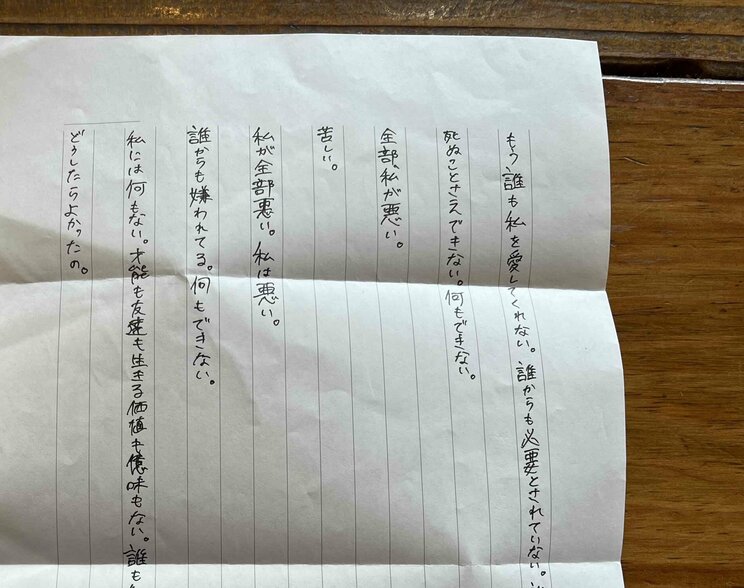 もう、誰も私を愛してくれない。誰からも必要とされていない。
死ぬことさえできない。何もできない。
全部、私が悪い。
苦しい。
私が全部悪い。私は悪い。
誰からも嫌われてる。何もできない。
私には何もない。才能も友達も生きる価値も意味もない。誰も
どうしたらよかったの。